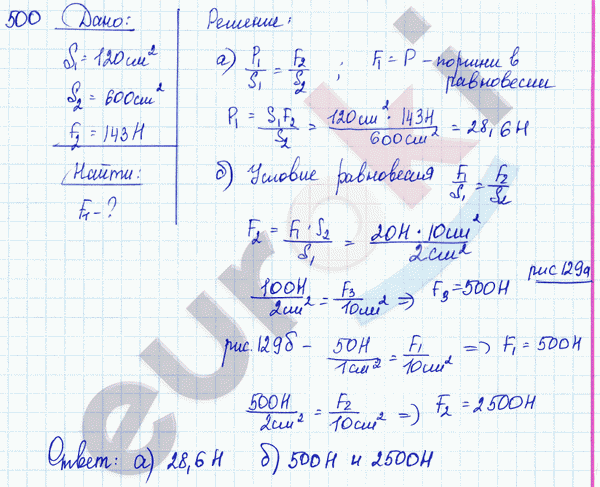 500 Дано:
S₁ = 120 см²
S₂ = 600 см²
F₂ = 143 Н
Найти:
F₁ - ?
Решение:
а) P₁/S₁ = F₂/S₂ ; F₁ = P - поршни в равновесии
P₁ = S₁F₂/S₂ = 120 см² · 143 Н/600 см² = 28,6 Н
б) Условие равновесия F₁/S₁ = F₂/S₂
F₂ = F₁ · S₂/S₁ = 20 Н · 10 см²/2 см²
рис 129а
100 Н/2 см² = F₃/10 см² => F₃ = 500 Н
рис. 129б - 50 Н/1 см² = F₁/10 см² => F₁ = 500 Н
500 Н/2 см² = F₂/10 см² => F₂ = 2500 Н
Ответ: а) 28,6 Н б) 500 Н и 2500 Н
euroki